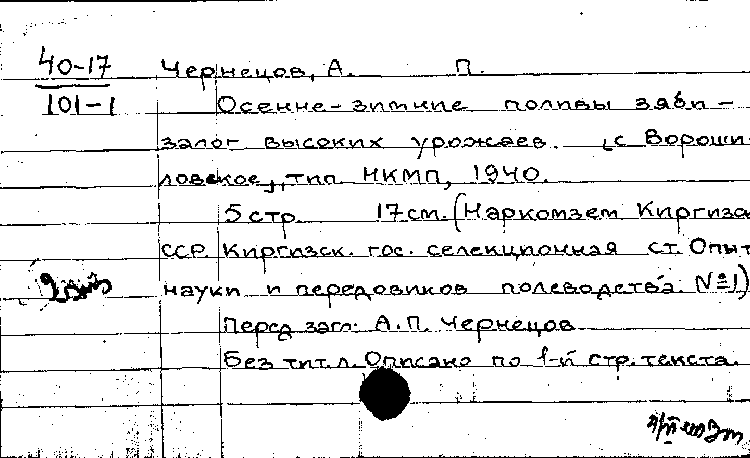 40-17
101-1
Чернецов, А. П.
Осенне-зимние поливы зяби -
залог высоких урожаев. [с Вороши
ловское], тип. НКМП, 1940.
5 стр. 17 см. (Наркомзем Киргиз
ССР. Киргизск. гос. селекционная ст. Опыт
науки и передовиков полеводства. №1)
Перед загл: А.П. Чернецов
Без тит. л. Описано по 1-й стр. текста.